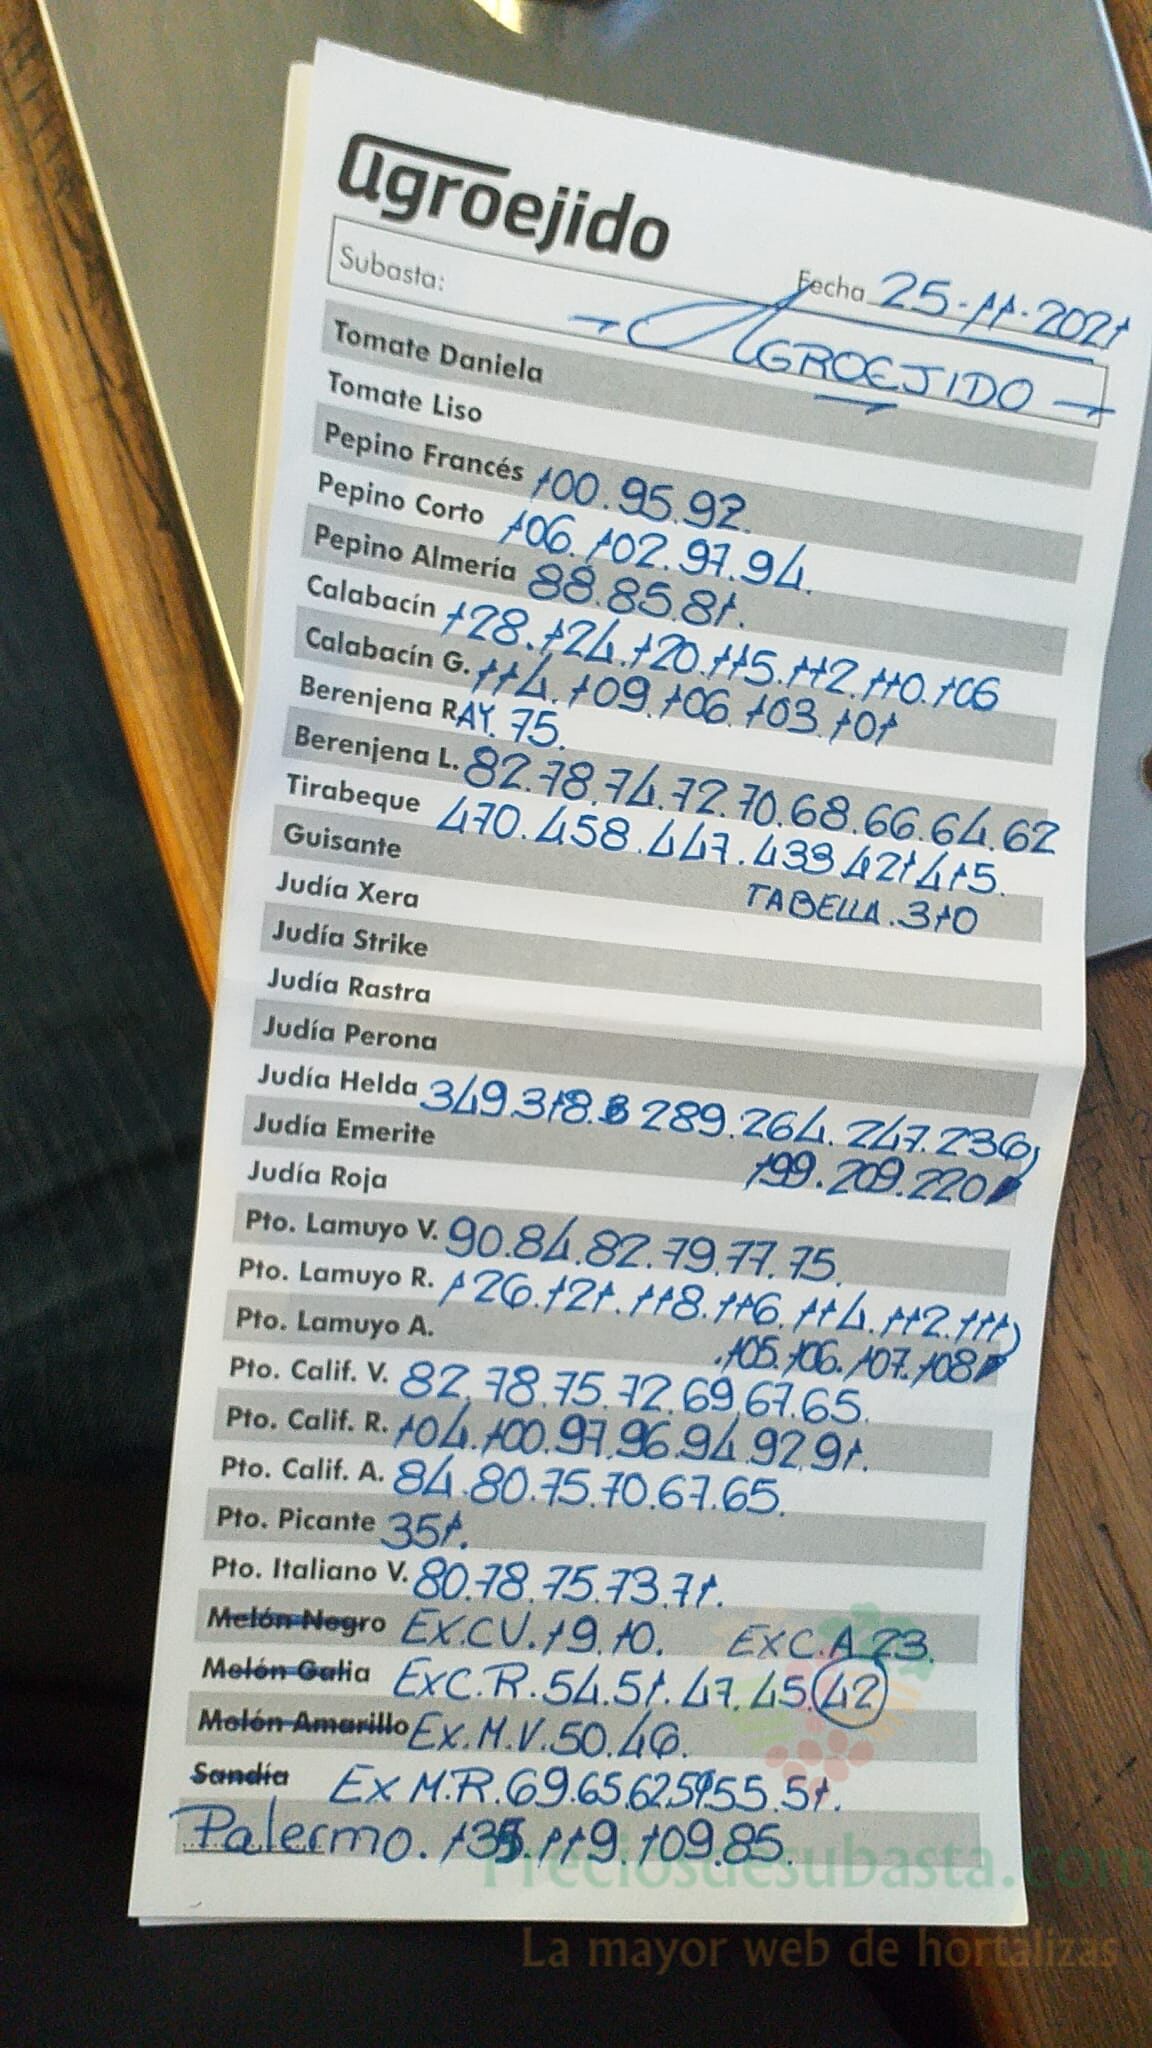 agroejido
Fecha 25-11-2021
Subasta: AGROEJIDO
Tomate Daniela
Tomate Liso
Pepino Francés 100.95.92.
Pepino Corto 106.102.97.94.
Pepino Almería 88.85.81.
Calabacín 128.124.120.115.112.110.106
Calabacín G. 114.109.106.103.101
Berenjena RAY.75.
Berenjena L. 82.78.74.72.70.68.66.64.62
Tirabeque 470.458.447.433 421 415.
Guisante TABELLA.310
Judía Xera
Judía Strike
Judía Rastra
Judía Perona
Judía Helda 349.318. 289.264.247.236
Judía Emerite 199.209.220
Judía Roja
Pto. Lamuyo V. 90.84.82.79.77.75.
Pto. Lamuyo R. 126.121.118.116.114.112.111
Pto. Lamuyo A. .105.106.107.108
Pto. Calif. V. 82.78.75.72.69.67.65.
Pto. Calif. R. 104.100.97.96.94.92.91.
Pto. Calif. A. 84.80.75.70.67.65.
Pto. Picante 351.
Pto. Italiano V. 80.78.75.73.71.
Melón Negro EX.CV.19.10. EXC.A 23.
Melón Galia EXC.R.54.51.47.45.42
Melón Amarillo Ex.M.V.50.46.
Sandía Ex M.R.69.65.62.59.55.51.
Palermo. 135.119.109.85.
Preciosdesubasta.com
La mayor web de hortalizas